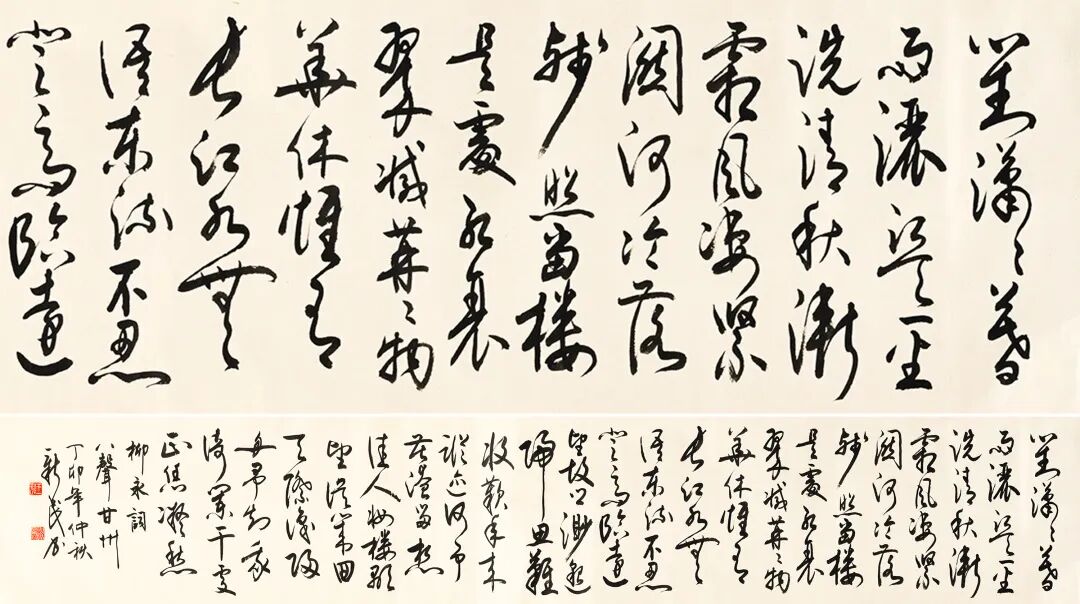 對瀟〻暮
雨灑江天一番
洗清秋漸
霜風凄緊
關河冷落
殘照當樓
是處紅衰
翠減苒〻物
華休惟有
長江水無
語東流不忍
登高臨遠
對瀟〻暮
雨灑江天一番
洗清秋漸
霜風凄緊
關河冷落
殘照當樓
是處紅衰
翠減苒〻物
華休惟有
長江水無
語東流不忍
登高臨遠
望故鄉渺邈
歸思難
收歎年來
蹤迹何事
苦淹留想
佳人妝樓顒
望誤幾回
天際識歸
舟爭知我
倚闌干處
正恁凝愁
柳永詞
八聲甘州
丁卯年仲秋